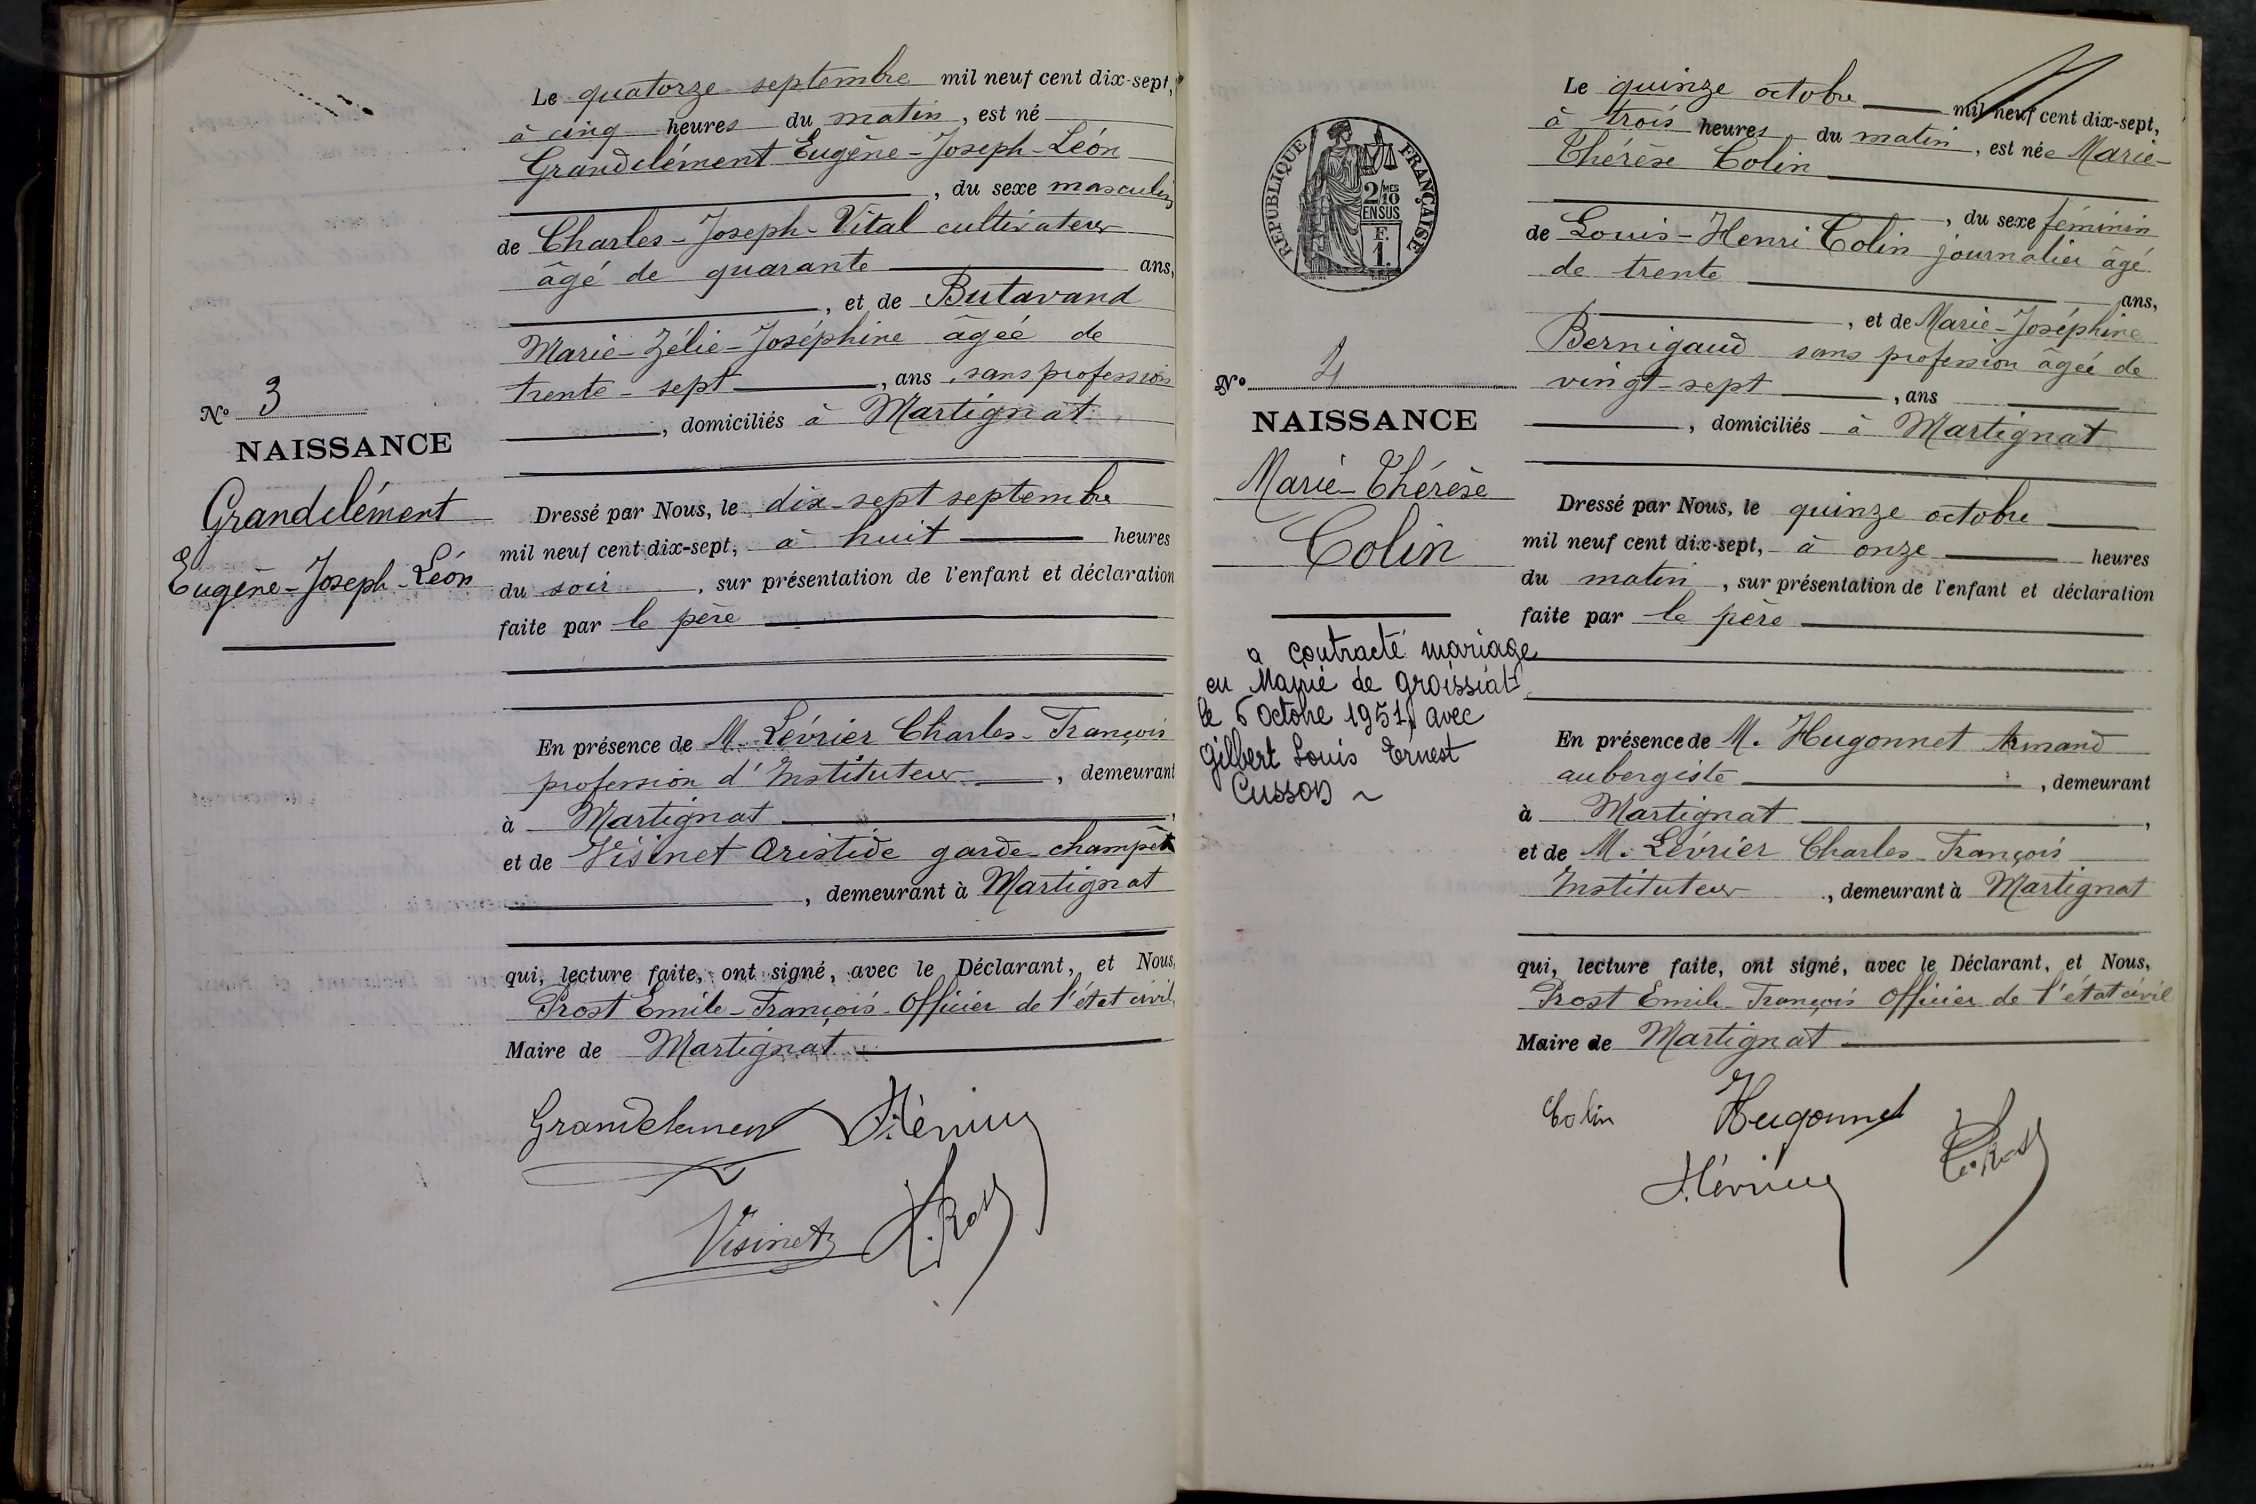 Le quatorze septembre mil neuf cent dix-sept,
à cinq heures du matin, est né
Grandclément Eugène-Joseph-Léon
, du sexe masculin
de Charles-Joseph-Vital cultivateur
âgé de quarante ans,
, et de Butavand
Marie-Zélie-Joséphine âgée de
trente-sept, ans, sans profession
, domiciliés à Martignat
N° 3
NAISSANCE
Grandclément
Eugène-Joseph-Léon
Dressé par Nous, le dix-sept septembre
mil neuf cent dix-sept, à huit heures
du soir, sur présentation de l'enfant et déclaration
faite par le père
En présence de M. Lévrier Charles-François
profession d'Instituteur, demeurant
à Martignat,
et de Visinet Aristide garde-champêt
, demeurant à Martignat
qui, lecture faite, ont signé, avec le Déclarant, et Nous,
Prost Emile-François Officier de l'état civil,
Maire de Martignat
Visinet
Le quinze octobre mil neuf cent dix-sept,
à trois heures du matin, est née Marie-
Thérèse Colin
, du sexe féminin
de Louis-Henri Colin journalier âgé
de trente ans,
, et de Marie-Joséphine
Bernigaud sans profession âgée de
vingt-sept, ans
, domiciliés à Martignat
RÉPUBLIQUE FRANÇAISE
2/10
MES
EN SUS
F.
1.
N° 4
NAISSANCE
Marie-Thérèse
Colin
a contracté mariage
en Mairie de Groissiat
le 6 octobre 1951, avec
Gilbert Louis Ernest
Cusson ~
Dressé par Nous, le quinze octobre
mil neuf cent dix-sept, à onze heures
du matin, sur présentation de l'enfant et déclaration
faite par le père
En présence de M. Hugonnet Armand
aubergiste, demeurant
à Martignat,
et de M. Lévrier Charles-François
Instituteur, demeurant à Martignat
qui, lecture faite, ont signé, avec le Déclarant, et Nous,
Prost Emile-François Officier de l'état civil
Maire de Martignat
Colin Hugonnet